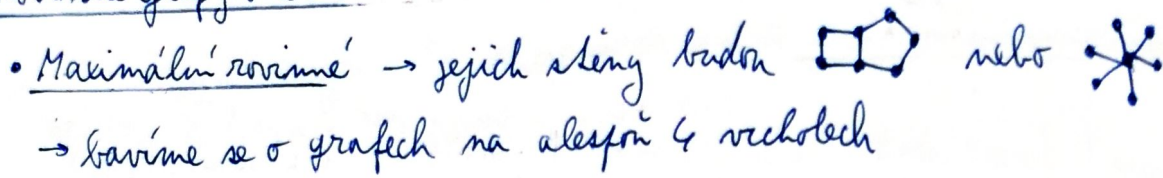 • Maximální rovinné → jejich stěny budou nebo
→ bavíme se o grafech na alespoň 4 vrcholech